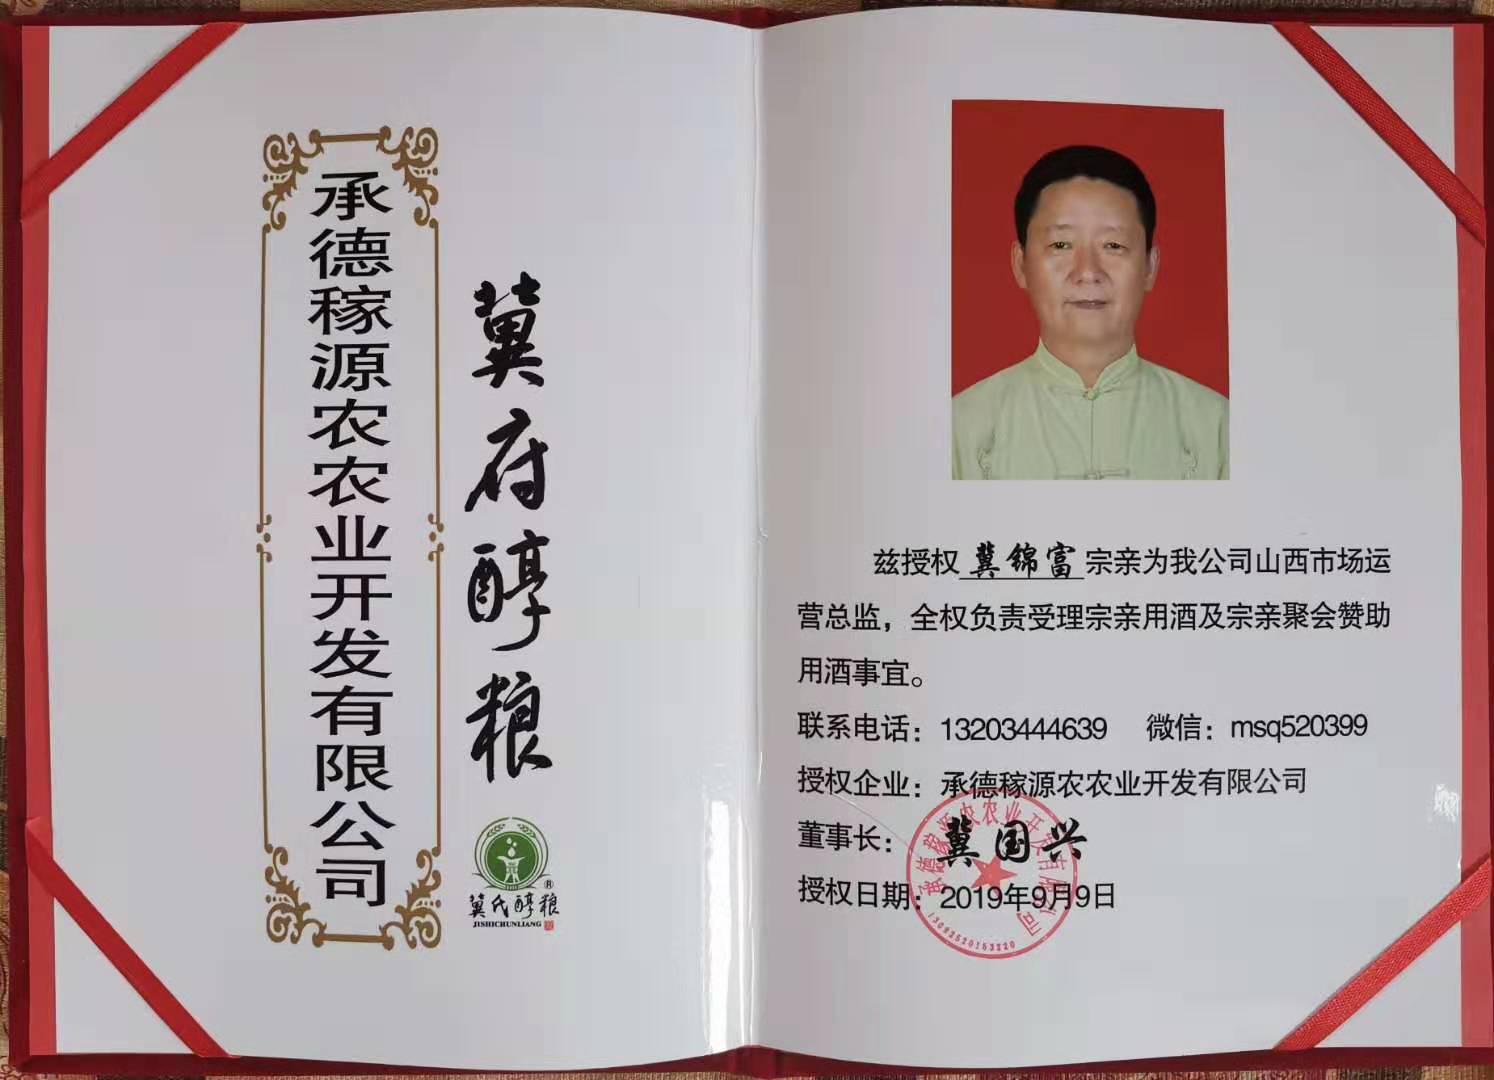 承德稼源农农业开发有限公司
冀府醇粮
®
冀氏醇粮
JISHICHUNLIANG
兹授权 冀锦富 宗亲为我公司山西市场运
营总监，全权负责受理宗亲用酒及宗亲聚会赞助
用酒事宜。
联系电话：13203444639 微信：msq520399
授权企业：承德稼源农农业开发有限公司
董事长： 冀国兴
授权日期：2019年9月9日
承德稼源农农业开发有限公司